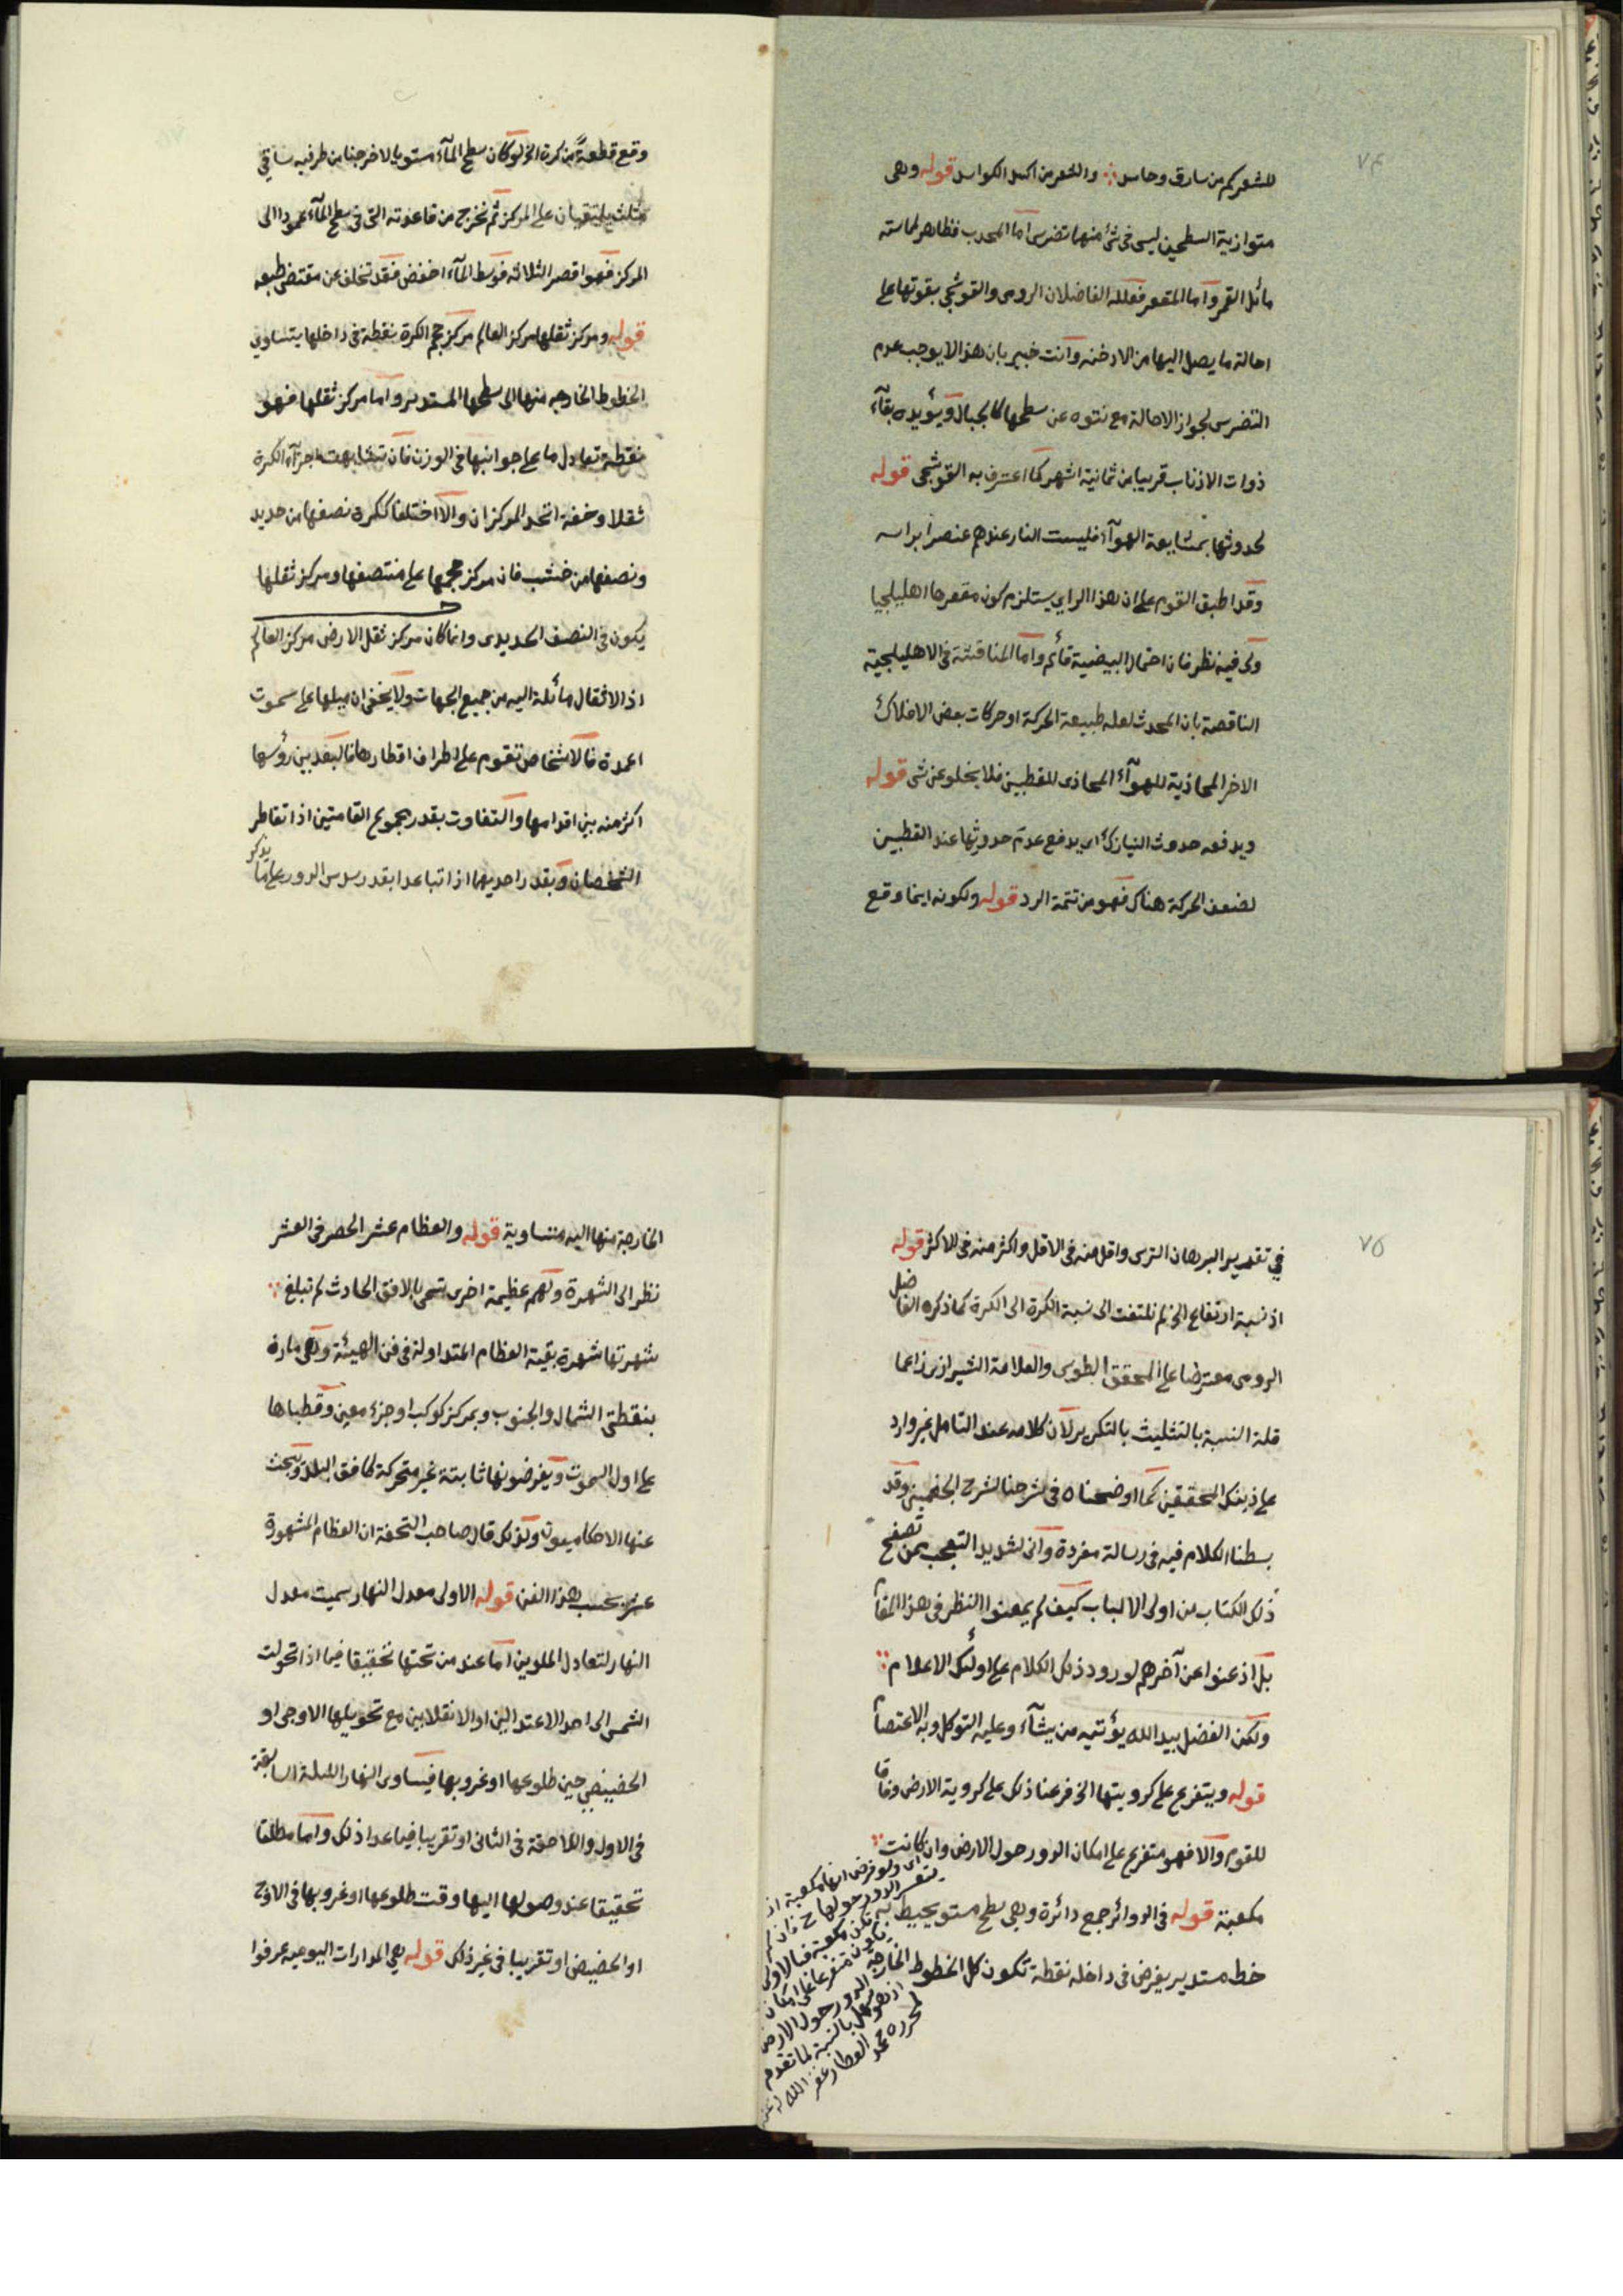 ٧٤
للشعر كم من سارق وحاسد ⁘ والشعر من اكسد الكواسد قوله وهى
متوازية السطحين ليس فى شئ منها تضرس اما المحدب فظاهر لمماسته
مائل القمر واما المقعر فعلله الفاضلان الرومى والقوشجى بقوتها على
احالة ما يصل اليها من الادخنه وانت خبير بان هذا لا يوجب عدم
التضرس لجواز الاحالة مع نتوه عن سطحها كالجبال ويؤيده بقآء
ذوات الاذناب قريبا من ثمانية اشهر كما اعترف به القوشجى قوله
لحدوثها بمشايعة الهوآء فليست النار عندهم عنصرا براسه
وقد اطبق القوم على ان هذا الراى يستلزم كون مقعرها اهليلجيا
ولى فيه نظر فان احتمال البيضية قائم واما المناقشة فى الاهليلجية
الناقصة بان المحدث لعله طبيعة الحركة او حركات بعض الافلاك
الاخر المحاذية للهوآء المحاذى للقطبين فلا يخلو عن شى قوله
ويدفعه حدوث النيازك اى يدفع عدم حدوثها عند القطبين
لضعف الحركة هناك فهو من تتمة الرد قوله ولكونه اينما وقع
وقع قطعةً من كرة الخ لو كان سطح المآء مستويا لاخرجنا من طرفيه ساقى
مثلث يلتقيان على المركز ثم نخرج من قاعدته التى فى سطح المآء عمودا الى
المركز فهو اقصر الثلاثه فوسط المآء اخفض فقد تخلف عن مقتضى طبعه
قوله ومركز ثقلها مركز العالم مركز حجم الكرة نقطة فى داخلها يتساوى
الخطوط الخارجه منها الى سطحها المستدير واما مركز ثقلها فهو
نقطة تعادل ما على جوانبها فى الوزن فان تشابهت اجزآء الكرة
ثقلا وخفة اتحد المركزان والا اختلفا ككرة نصفها من حديد
ونصفها من خشب فان مركز حجمها على منتصفها ومركز ثقلها
يكون فى النصف الحديدى وانما كان مركز ثقل الارض مركز العالم
اذ الاثقال مائلة اليه من جميع الجهات ولا يخفى ان ميلها على سموت
اعمدة فالاشخاص تقوم على اطراف اقطارها فالبعد بين رؤسها
اكثر منه بين اقدامها والتفاوت بقدر مجموع القامتين اذا تقاطر
الشخصان وبقدر احديهما اذا تباعدا بقدر سدس الدور على ما يذكر
٧٥
في تقدير البرهان الترسى واقل منه فى الاقل واكثر منه فى الاكثر قوله
اذ نسبة ارتفاع الخ لم نلتفت الى نسبة الكرة الى الكرة كما ذكره الفاضل
الرومى معترضا على المحقق الطوسى والعلامة الشيرازى زاعما
قلة النسبة بالتثليث بالتكرير لان كلامه عند التامل غير وارد
على ذينك المحققين كما اوضحناه فى شرحنا لشرح الجغمينى وقد
بسطنا الكلام فيه فى رسالة مفردة وانى لشديد التعجب ممن تصفح
ذلك الكتاب من اولى الالباب كيف لم يمعنوا النظر فى هذا المقام
بل اذعنوا عن آخرهم لورود ذلك الكلام على اولئك الاعلام ⁘
ولكن الفضل بيد الله يؤتيه من يشآء وعليه التوكل وبه الاعتصام
قوله ويتفرع على كرويتها الخ فرعنا ذلك على كروية الارض وفاقا
للقوم والا فهو متفرع على امكان الدور حول الارض وان كانت ⁘
مكعبة قوله فى الدوائر جمع دائرة وهى سطح مستو يحيط به
خط مستدير يفرض فى داخله نقطة تكون كل الخطوط الخارجة
اى ولو فرض انها مكعبة اذ
يتعسر الدور حولها ح فان لم
تكن مكعبة فبالاولى
يكون متفرعا على امكان
الدور حول الارض
اذ هو سهل بالنسبة لما تقدم
لمحرره محمد العطار غفر الله له
الخارجة منها اليه متساوية قوله والعظام عشر الحصر فى العشر
نظر الى الشهرة ولهم عظيمة اخرى تسمى بالافق الحادث لم تبلغ ⁘
شهرتها شهرة بقية العظام المتداولة فى فن الهيئة وهى مارة
بنقطتى الشمال والجنوب وبمركز كوكب او جزء معين وقطباها
على اول السموت ويفرضونها ثابتة غير متحركة كافق البلد ويبحث
عنها الاحكاميون ولذلك قال صاحب التحفة ان العظام المشهورة
عشر بحسب هذا الفن قوله الاولى معدل النهار سميت معدل
النهار لتعادل الملوين اما عند من تحتها تحقيقا فيما اذا تحولت
الشمس الى احد الاعتدالين او الانقلابين مع تحويلها الاوجى او
الحضيضى حين طلوعها او غروبها فيساوى النهار الليلة السابقة
فى الاول واللاحقة فى الثانى او تقريبا فيما عدا ذلك واما مطلقا
تحقيقا عند وصولها اليها وقت طلوعها او غروبها فى الاوج
او الحضيض او تقريبا فى غير ذلك قوله هى المدارات اليوميه عرفوا